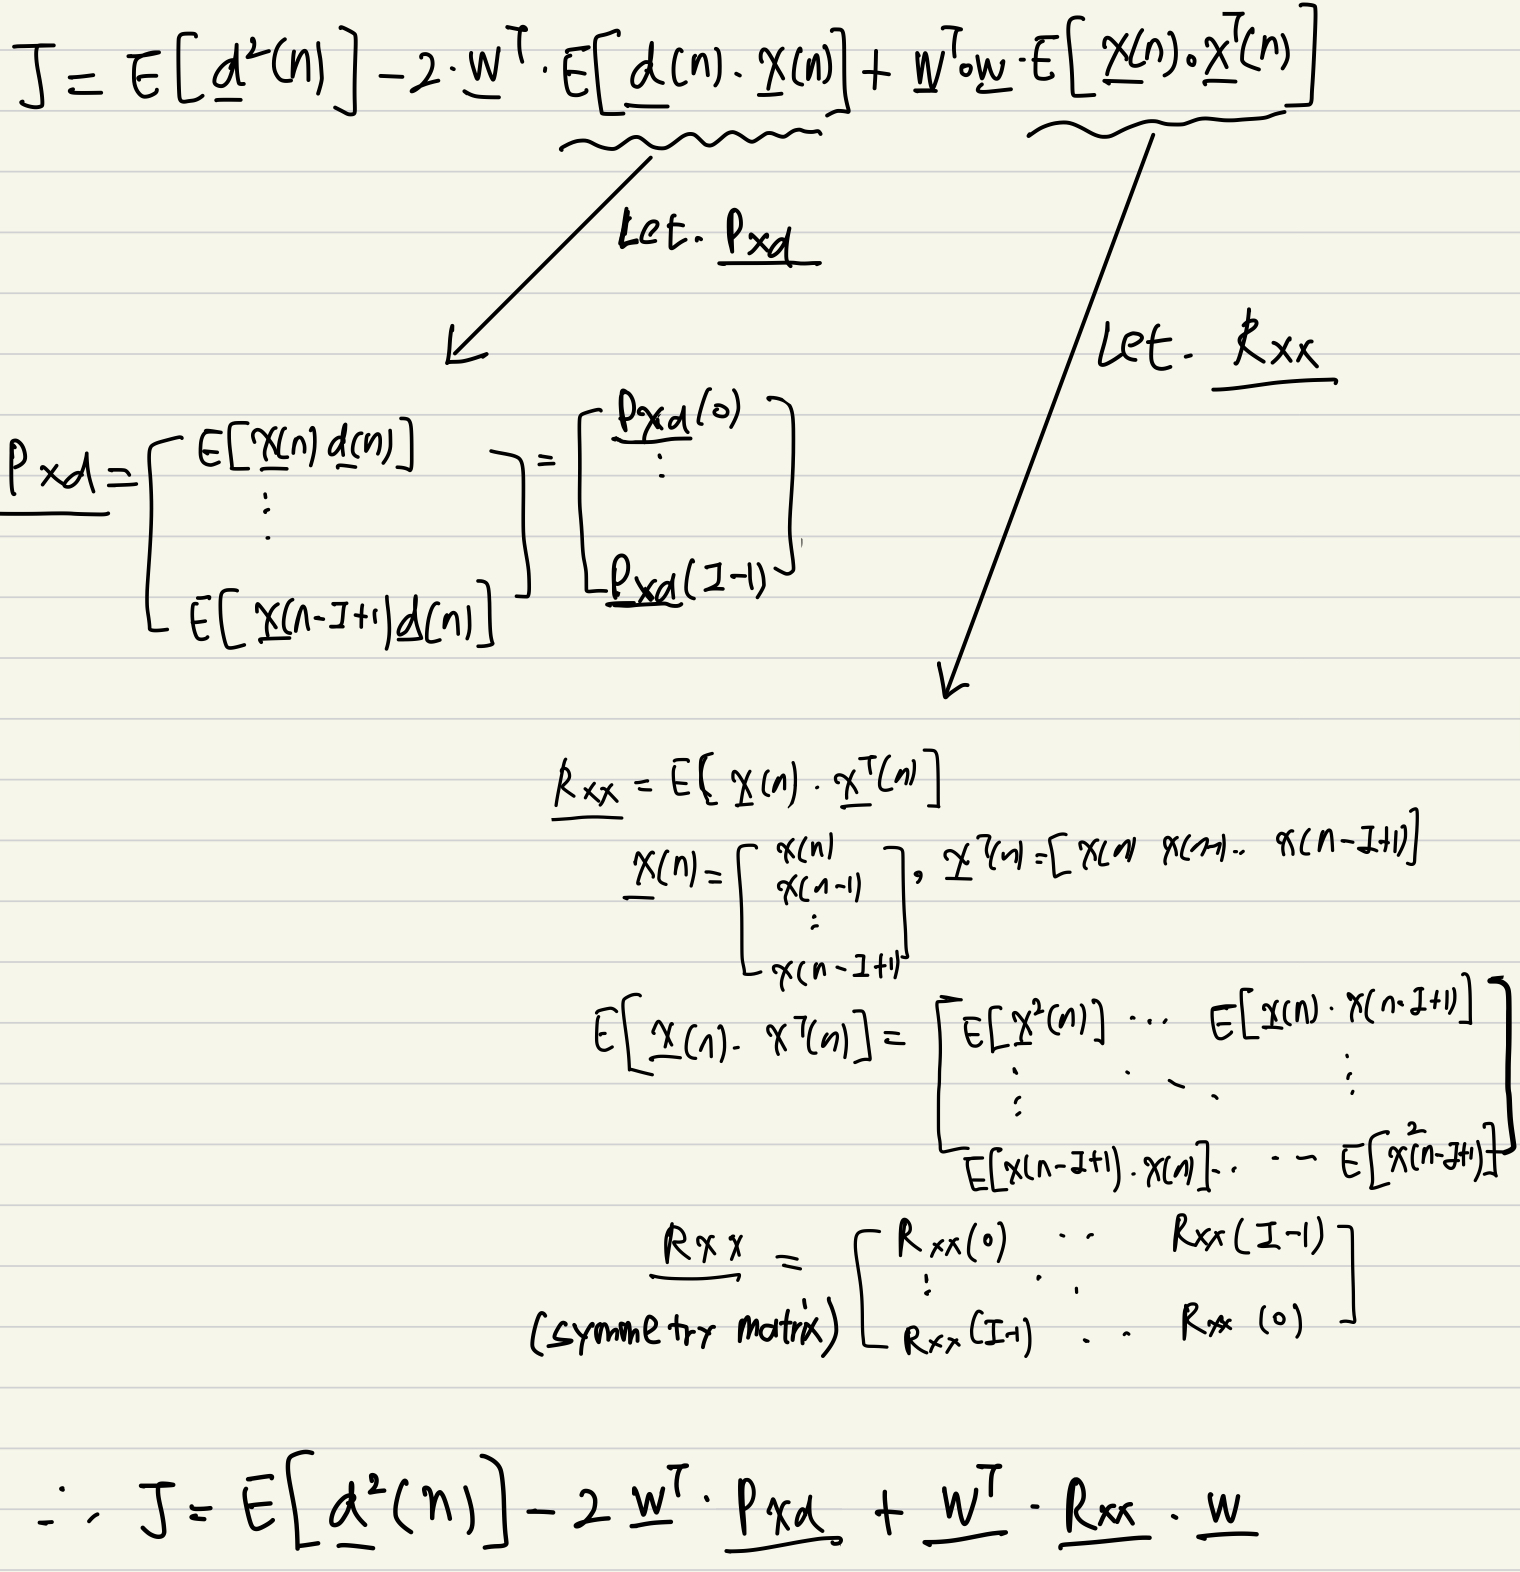 J = E[d²(n)] - 2·w^T·E[d(n)·x(n)] + w^T·w·E[x(n)·x^T(n)]
Let. Pxd
Let. Rxx
Pxd = [ E[x(n) d(n)] ⋮ E[x(n-I+1)d(n)] ] = [ Pxd(0) ⋮ Pxd(I-1) ]
Rxx = E[x(n)·x^T(n)]
x(n) = [ x(n) x(n-1) ⋮ x(n-I+1) ], x^T(n) = [x(n) x(n-1)·· x(n-I+1)]
E[x(n)·x^T(n)] = [ E[x²(n)] ··· E[x(n)·x(n-I+1)] ⋮ ⋱ ⋮ E[x(n-I+1)·x(n)]·· ·· E[x²(n-I+1)] ]
Rxx = [ Rxx(0) ·· Rxx(I-1) ⋮ ⋱ Rxx(I-1) ·· Rxx(0) ]
(symmetry matrix)
∴ J = E[d²(n)] - 2 w^T·Pxd + w^T·Rxx·w